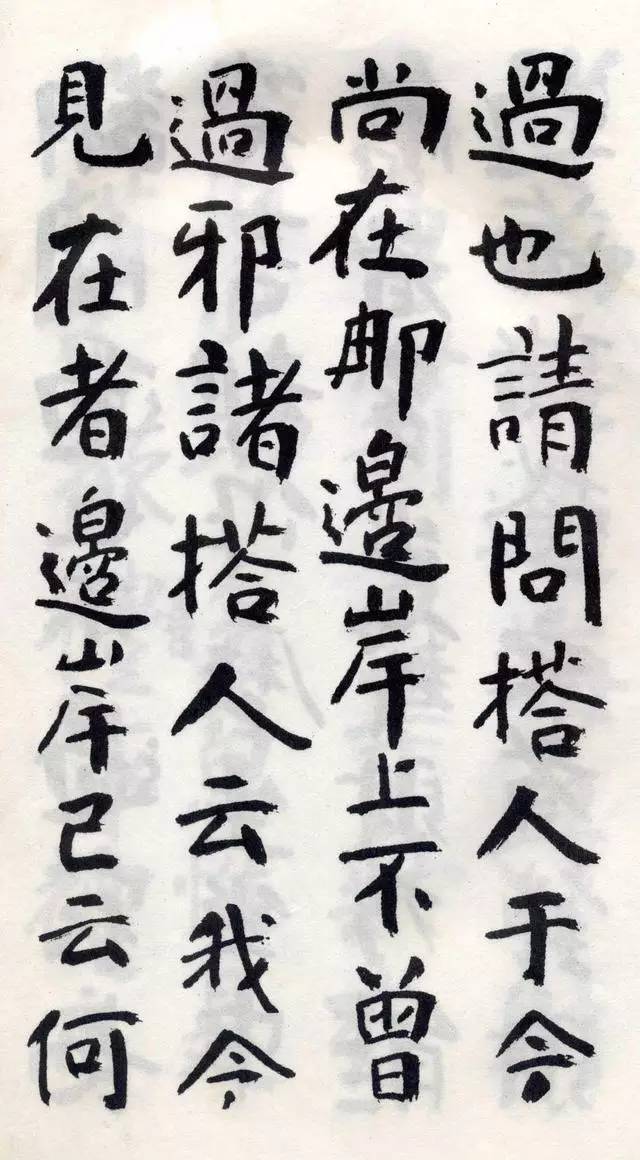 過也請問搭人于今
尚在那邊岸上不曾
過邪諸搭人云我今
見在者邊岸已云何